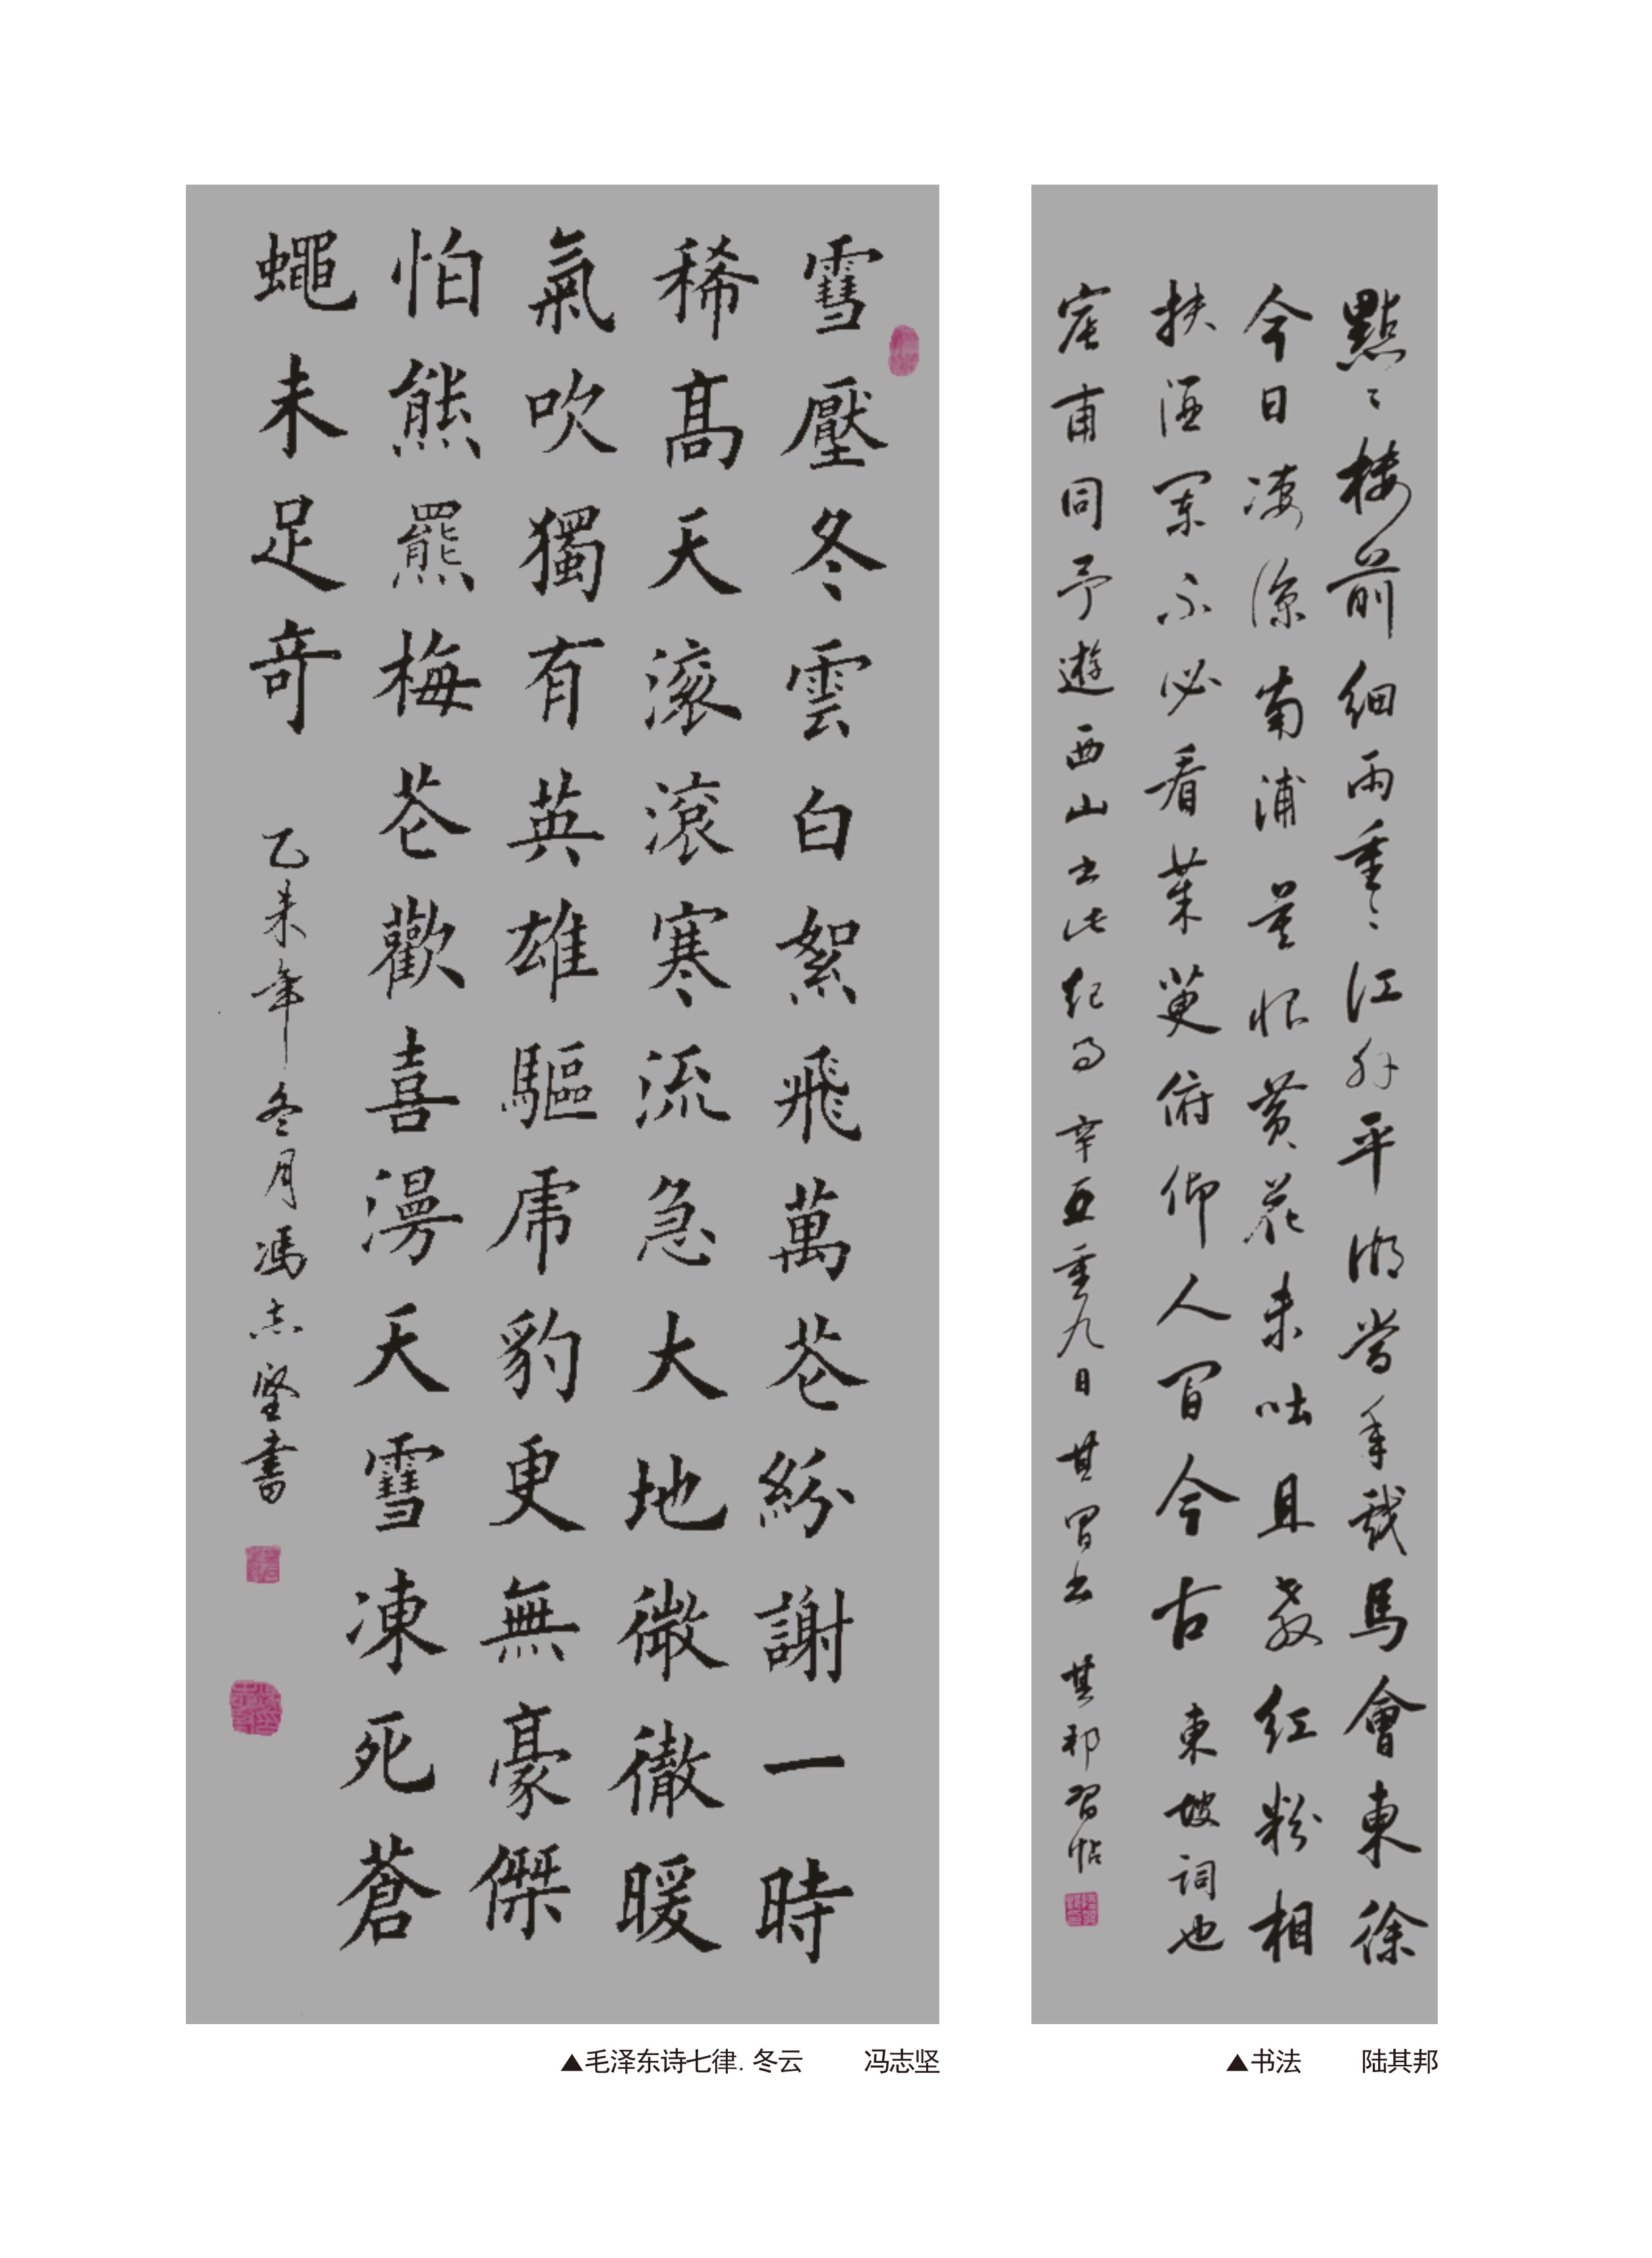 雪壓冬雲白絮飛萬花紛謝一時
稀高天滾滾寒流急大地微微暖
氣吹獨有英雄驅虎豹更無豪傑
怕熊羆梅花歡喜漫天雪凍死蒼
蠅未足奇 乙未年冬月馮志堅書
▲毛泽东诗七律.冬云 冯志坚
點々樓前細雨重々江外平湖當年戲馬會東徐
今日淒涼南浦莫恨黃花未吐且教紅粉相
扶酒闌不必看茱萸俯仰人間今古 東坡詞也
甫同予遊西山書此紀事 辛丑重九日其昌書 其邦習帖
▲书法 陆其邦